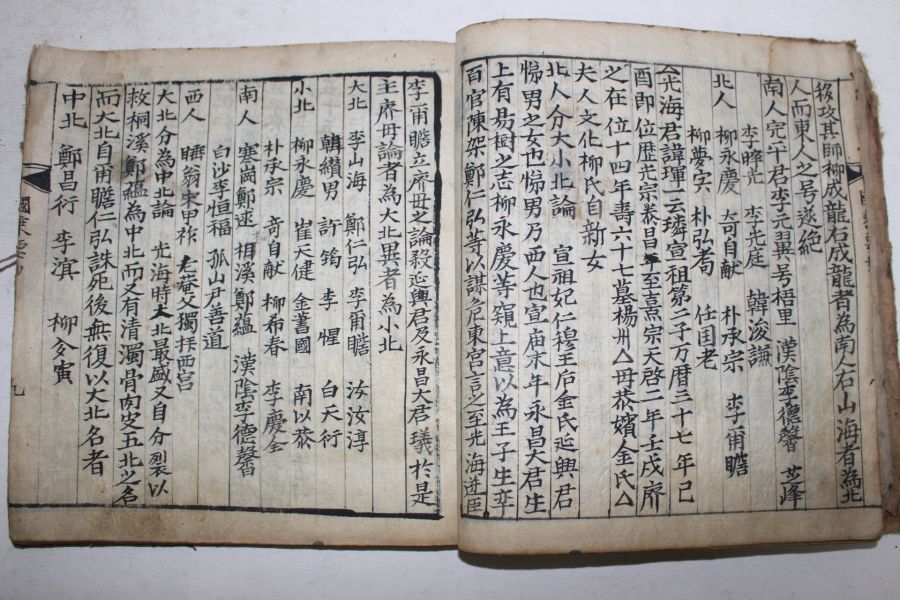 移攻其師柳成龍右成龍者為南人右山海者為北
人而東人之号遂絶
南人 完平君李元翼号梧里 漢陰李德馨 芝峰
李睟光 李光庭 韓浚謙
北人 柳永慶 奇自献 朴承宗 李甫瞻
柳夢寅 朴弘耉 任国老
光海君諱琿 宣祖第二子万曆三十七年己
酉即位歴光宗泰昌至熹宗天啓二年壬戌廢
之在位十四年壽六十七墓楊州△母恭嬪金氏△
夫人文化柳氏自新女
北人分大小北論 宣祖妃仁穆王后金氏延興君
悌男之女也悌男乃西人也宣庙末年永昌大君生
上有易樹之志柳永慶等窺上意以為王子生幸
百官陳架鄭仁弘等以謀危東宮言之至光海并臣
李甫瞻立廢母之論殺延興君及永昌大君㼁於是
主廢母論者為大北異者為小北
大北 李山海 鄭仁弘 李甫瞻
韓纘男 許筠 李惺 白天行
小北 柳永慶 崔天健 金藎國 南以恭
朴承宗 奇自献 柳希春 李慶全
南人 寒岡鄭逑 桐溪鄭蘊 漢陰李德馨
白沙李恒福 孤山尹善道
西人 東甲祚 父獨拜西宮
大北分為中北論 光海時大北最盛又自分裂以
救桐溪鄭蘊為中北而又有清濁骨肉皮五北之名
而大北自甫瞻仁弘誅死後無復以大北名者
中北 鄭昌衍 李溟 柳夢寅
九